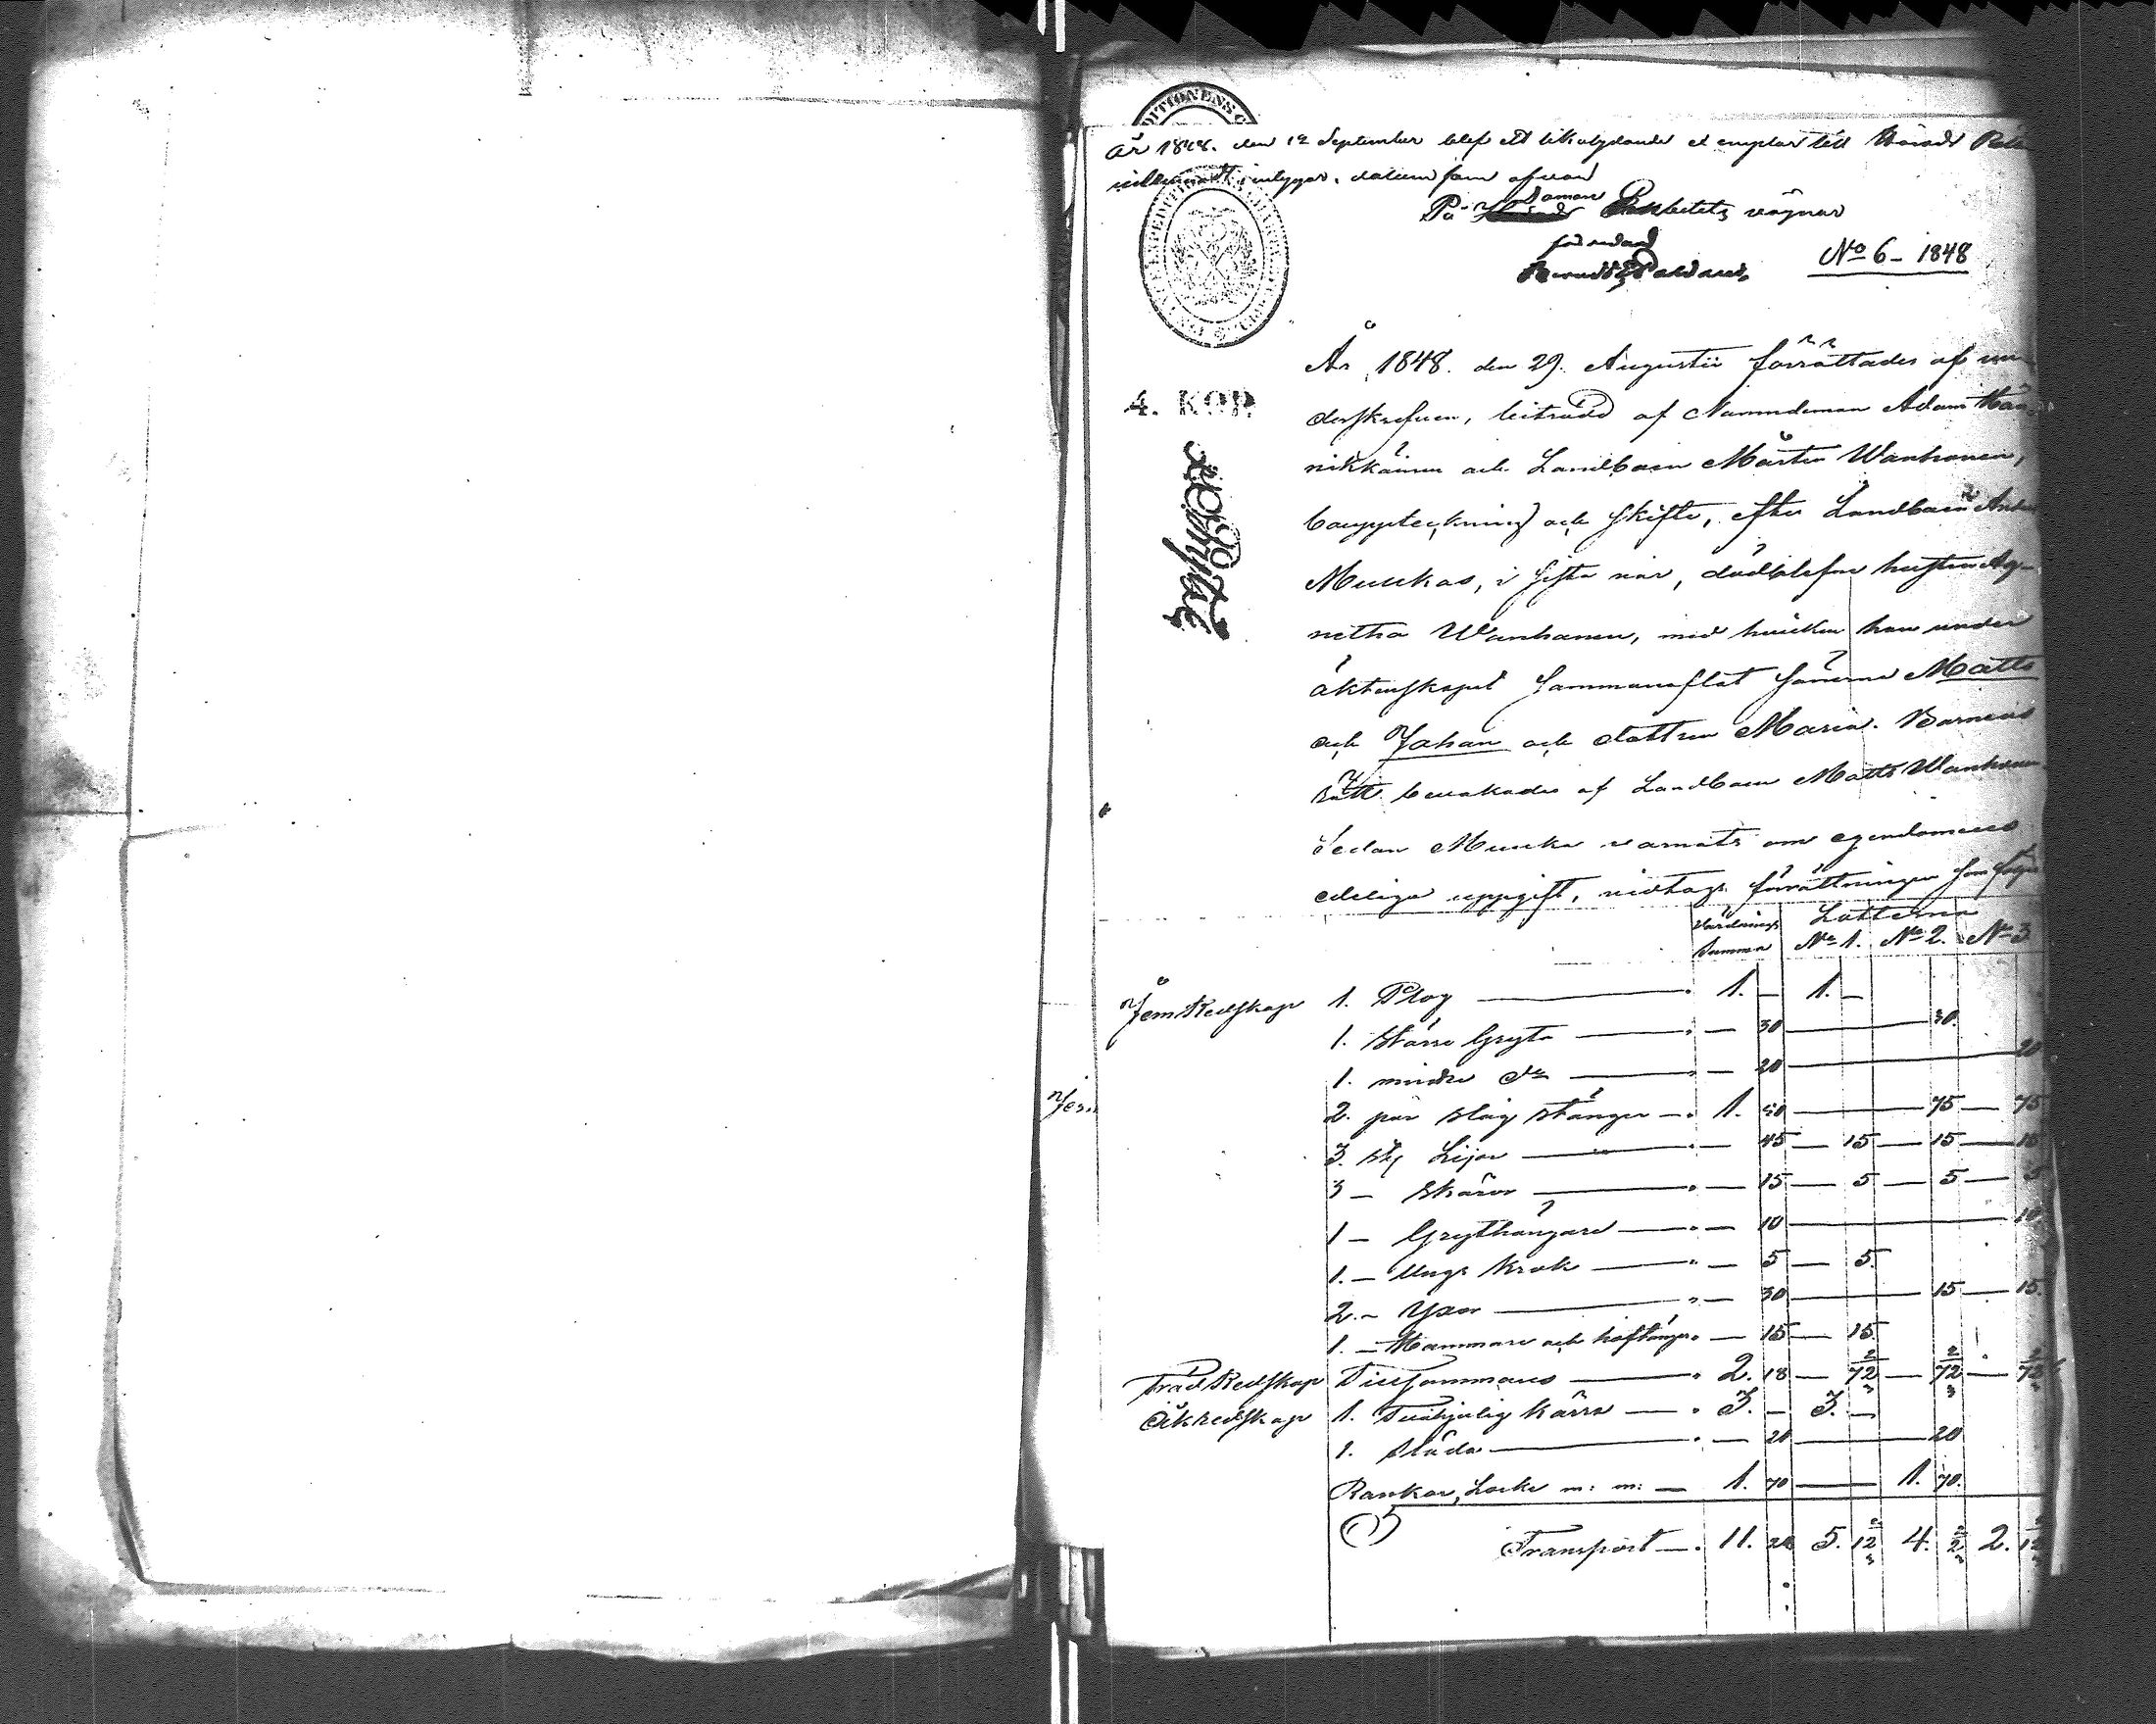 År 1848. den 12 September blef ett likalydande exemplar till Härads Rätten
insändt, intyggar, datum som ofvan
På Domare Embetets vägnar
No 6 - 1848
År 1848. den 29. Augustii förrättades af un-
4. KOP.
derskrefven, biträdd af Nämndeman Adam Hän-
nikkäinen och Landboen Mårten Wanhanen,
bouppteckning och skifte, efter Landboen
Muukas, i sista när, dödblefne hustru Ag-
netha Wanhanen, med hvilken han under
äktenskapet sammanaflat sönerne Matts
och Johan och dottren Maria. Barnens
rätt bevakades af Landboen Matts Wanhanen
Sedan Muuka varnats om egendomens
edeliga uppgift, vidtags förrättningen som följer
Värderings Summa Lotterna No 1. No 2. No 3
Jern Redskap 1. Plog 1. — 1. —
1. större Gryta — 30 30.
1. mindre do — 20 20
2. par plog stänger 1. 50 75 75
3. st. Lijor — 45 15 15 15
3 — Skäror — 15 5 5 5
1 — Grythängare — 10 10
1. — Ungs krok — 5 5.
2. — Yxor — 30 15 15.
1. — Hammare och hoftång — 15 15.
Träd Redskap Tillsammans 2. 18 72 72 72
Åkredskap 1. Tvåhjulig kärra 3. — 3. —
1. släda — 20 20
Rankor, Loeke m: m: 1. 70 1. 70.
Transport 11. 28 5. 12 2/3 4. 2 2/3 2. 12 2/3